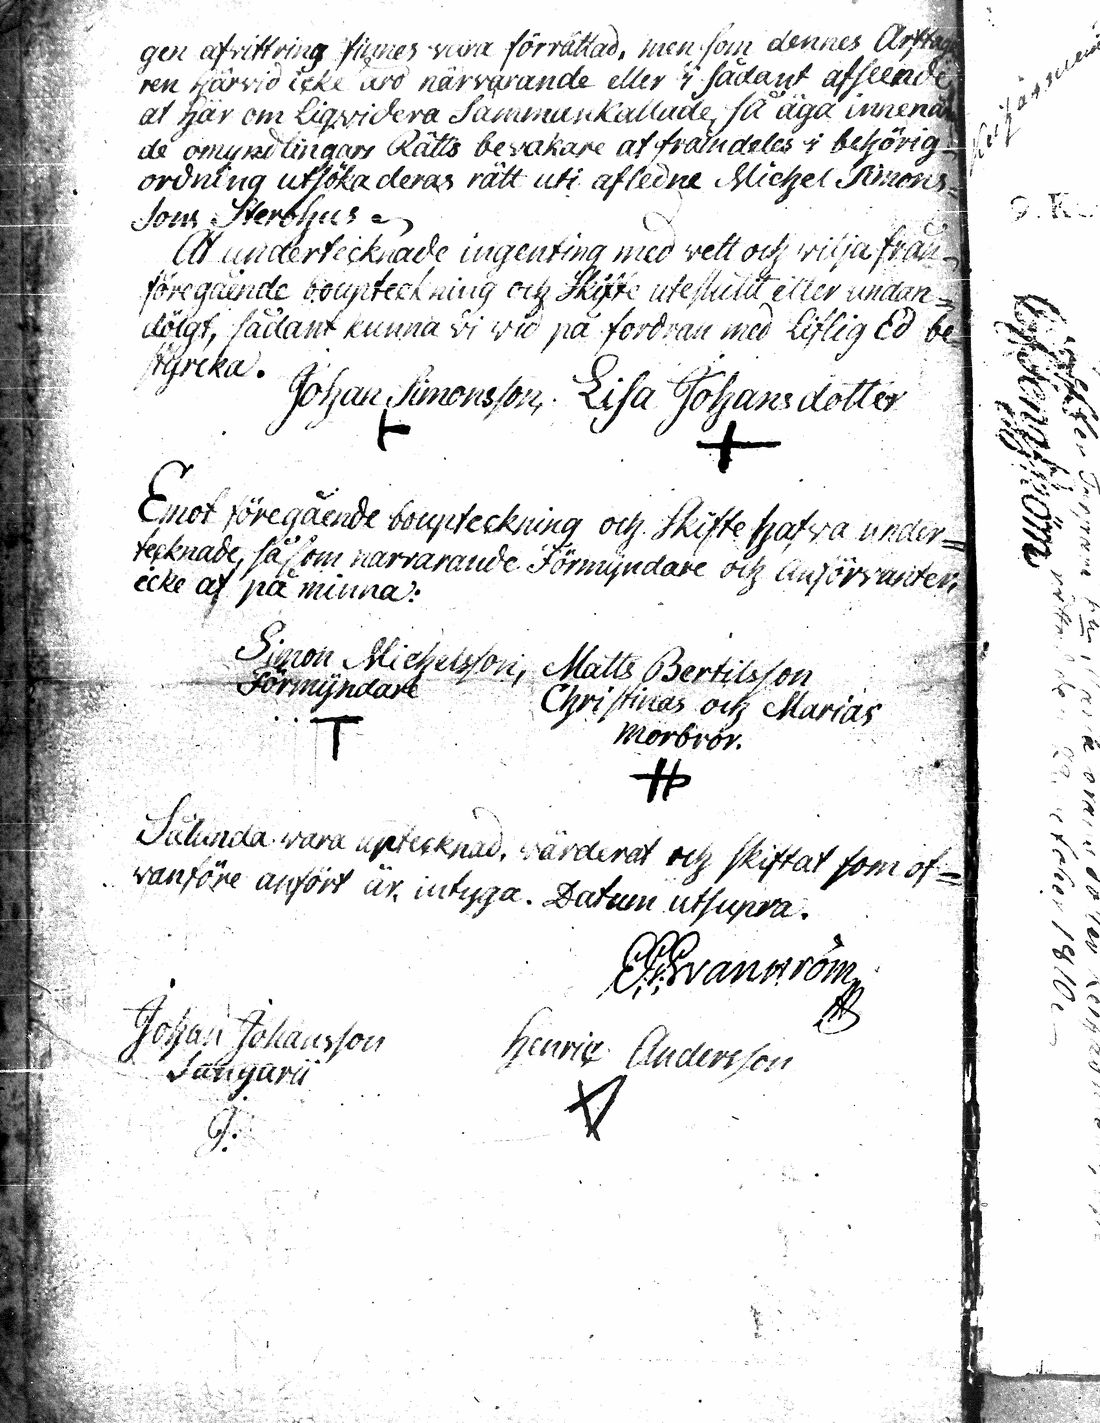 gen afvittring finnes vara förrättad, men som dennes Arftaga
ren härvid icke äro närvarande eller i sådant afseende
at här om Liqvidera Sammankallade, så äga innevaran
de omyndlingars Rätts bevakare at framdeles i behörig
ordning utsöka deras rätt uti afledne Michel Simons=
sons Sterbhus
At undertecknade ingenting med vett och vilja från
föregående bouptekning och Skifte uteslutit eller undan=
dölgt, sådant kunna vi vid på fordran med Liflig Ed be
styrcka.
Johan Simonsson, Lisa Johansdotter
Emot föregående boupteckning och Skifte hafva under=
tecknade, såsom närvarande Förmyndare och Anförvanter,
icke at på minna:
Simon Michelsson, Matts Bertilsson
Förmyndare Christinas och Marias
Morbror.
Sålunda vara uptecknad, värderat och skiftat som of=
vanföre anfört är, intyga. Datum utsupra.
Svanström
Johan Johansson Henric Andersson